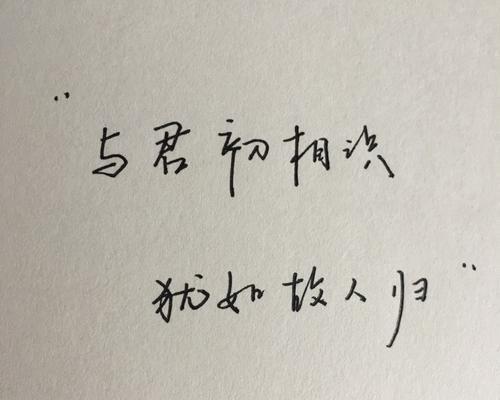 “与君初相识
犹如故人归”